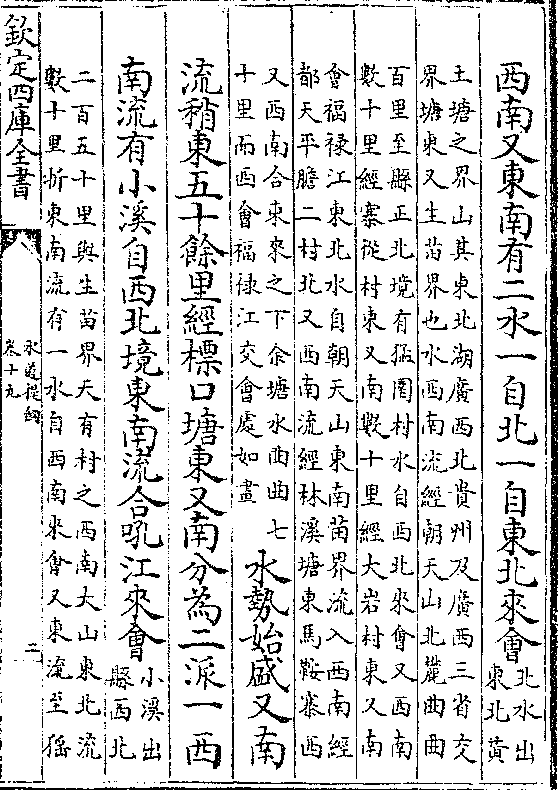 西南又東南有二水一自北一自東北來會北水出
東北黃
土塘之界山其東北湖廣西北貴州及廣西三省交
界塘東又生苗界也水西南流經朝天山北麓曲曲
百里至縣正北境有猛團村水自西北來會又西南
數十里經寨從村東又南數十里經大岩村東又南
會福祿江東北水自朝天山東南苗界流入西南經
都天平膽二村北又西南流經林溪塘東馬鞍寨西
又西南合東來之下佘塘水曲曲七
十里而西會福祿江交會處如畫
水勢始盛又南
流稍東五十餘里經標口塘東又南分為二派一西
南流有小溪自西北境東南流合吼江來會小溪出
縣西北
二百五十里與生苗界天有村之西南大山東北流
數十里折東南流有一水自西南來會又東流至猺
欽定四庫全書
水道提綱
卷十九
二